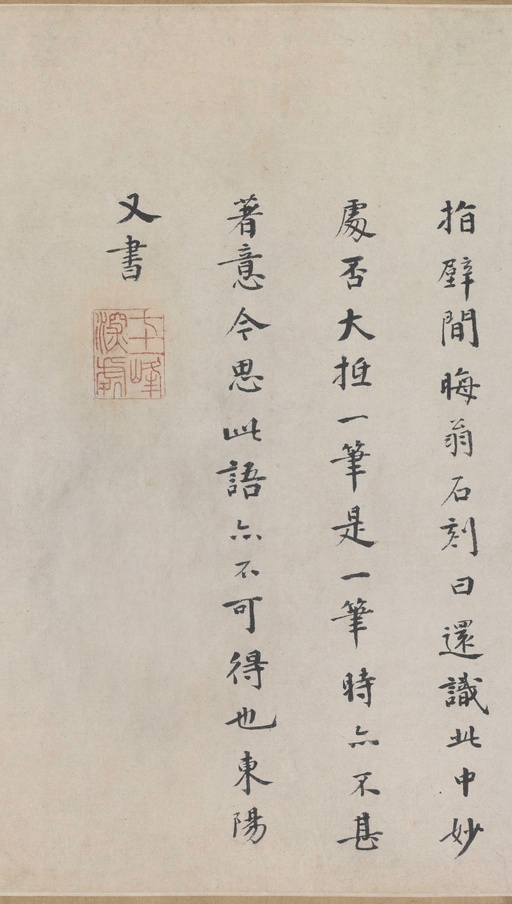 指壁間晦翁石刻曰還識此中妙
處否大抵一筆是一筆時亦不甚
著意今思此語亦不可得也東陽
又書